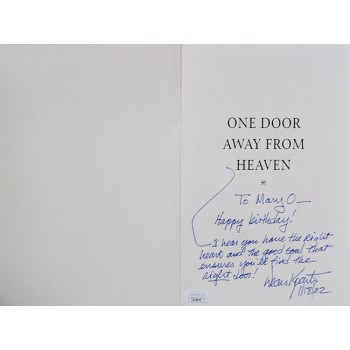 ONE DOOR
AWAY FROM
HEAVEN
To Mary O—
Happy birthday!
I hear you have the right
heart and the good soul that
ensures you'll find the
right door!
Dean Koontz
1/18/02